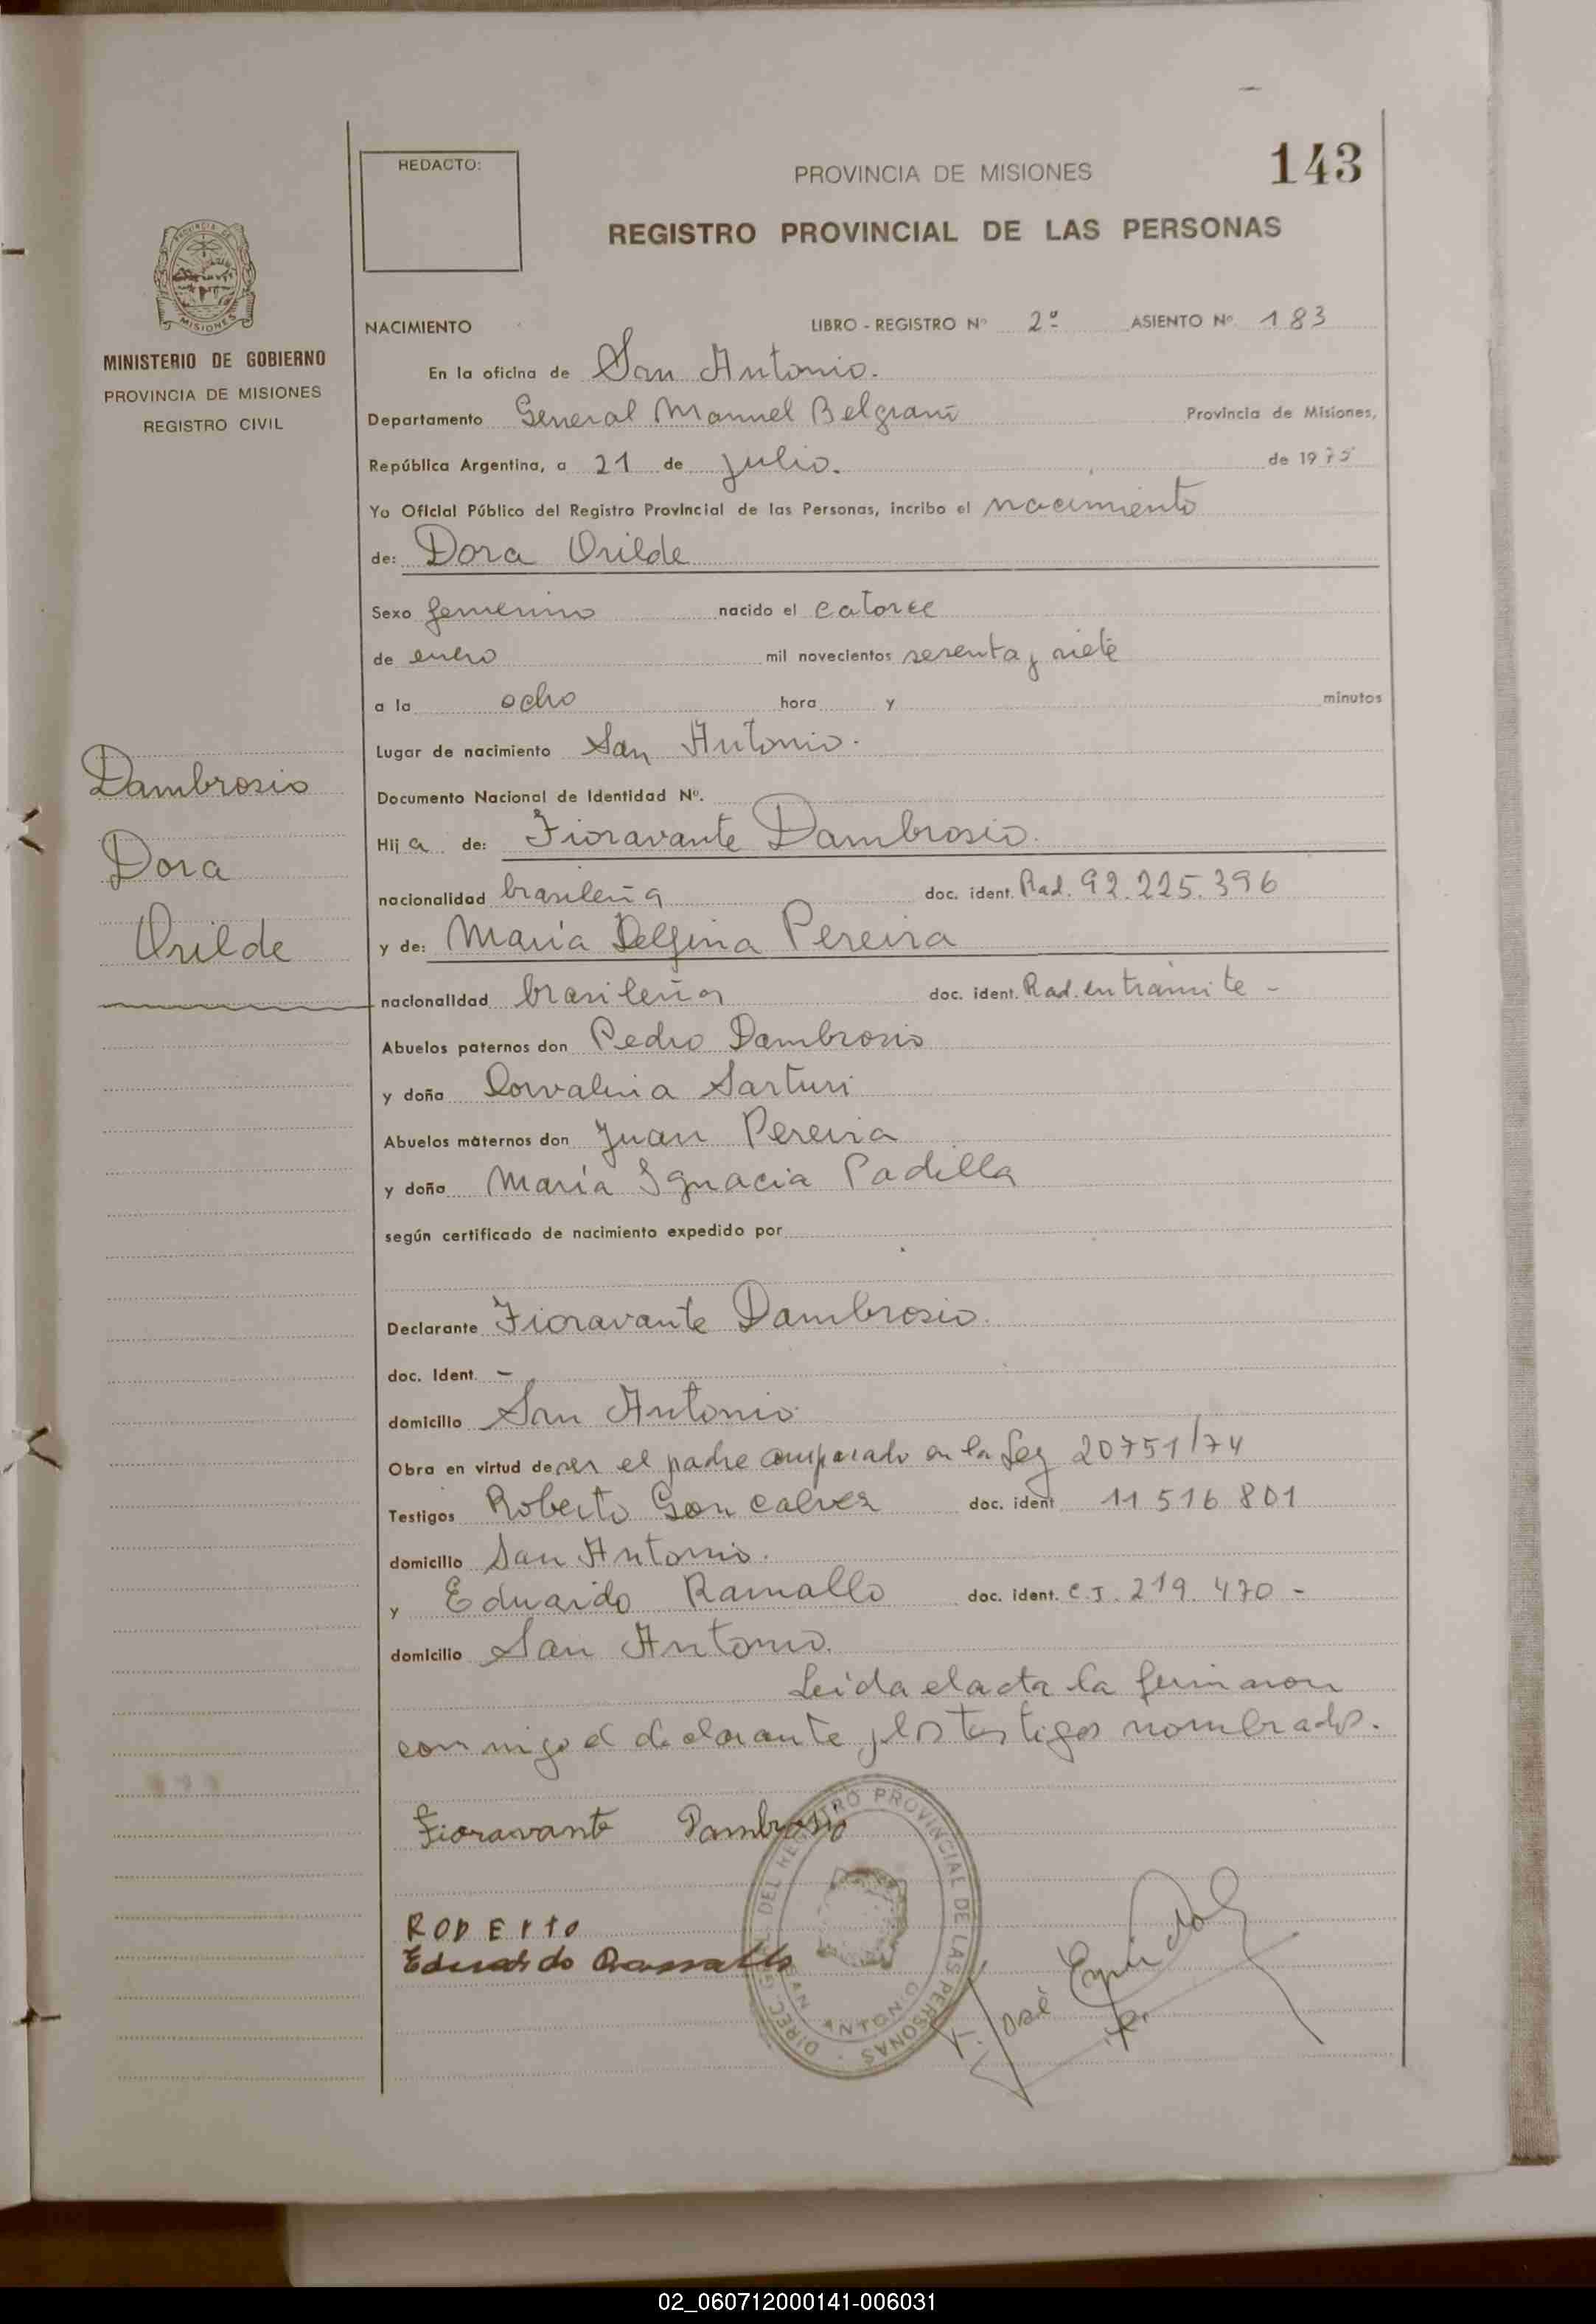 143
REDACTO:
PROVINCIA DE MISIONES
REGISTRO PROVINCIAL DE LAS PERSONAS
MINISTERIO DE GOBIERNO
PROVINCIA DE MISIONES
REGISTRO CIVIL
NACIMIENTO LIBRO - REGISTRO Nº 2º ASIENTO Nº 183
En la oficina de San Antonio.
Departamento General Manuel Belgrano Provincia de Misiones,
República Argentina, a 21 de julio. de 1975
Yo Oficial Público del Registro Provincial de las Personas, incribo el nacimiento
de: Dora Orilde
Sexo femenino nacido el catorce
de enero mil novecientos sesenta y siete
a la ocho hora y minutos
Lugar de nacimiento San Antonio.
Documento Nacional de Identidad Nº.
Dambrosio
Dora
Orilde
Hija de: Fioravante Dambrosio.
nacionalidad brasileña doc. ident. Rad. 92.225.396
y de: María Delfina Pereira
nacionalidad brasileña doc. ident. Rad. en trámite -
Abuelos paternos don Pedro Dambrosio
y doña Dorvalina Sarturi
Abuelos maternos don Juan Pereira
y doña María Ignacia Padilla
según certificado de nacimiento expedido por
Declarante Fioravante Dambrosio.
doc. Ident. -
domicilio San Antonio
Obra en virtud de ser el padre amparado en la Ley 20751/74
Testigos Roberto Goncalves doc. ident 11 516 801
domicilio San Antonio.
y Eduardo Ramallo doc. ident. C.I. 219.470 -
domicilio San Antonio.
Leida el acta la firmaron
conmigo el declarante y los testigos nombrados.
Fioravante Dambrosio
DIREC. GRAL. DEL REGISTRO PROVINCIAL DE LAS PERSONAS
SAN ANTONIO
Eduardo Ramallo
José
02_060712000141-006031